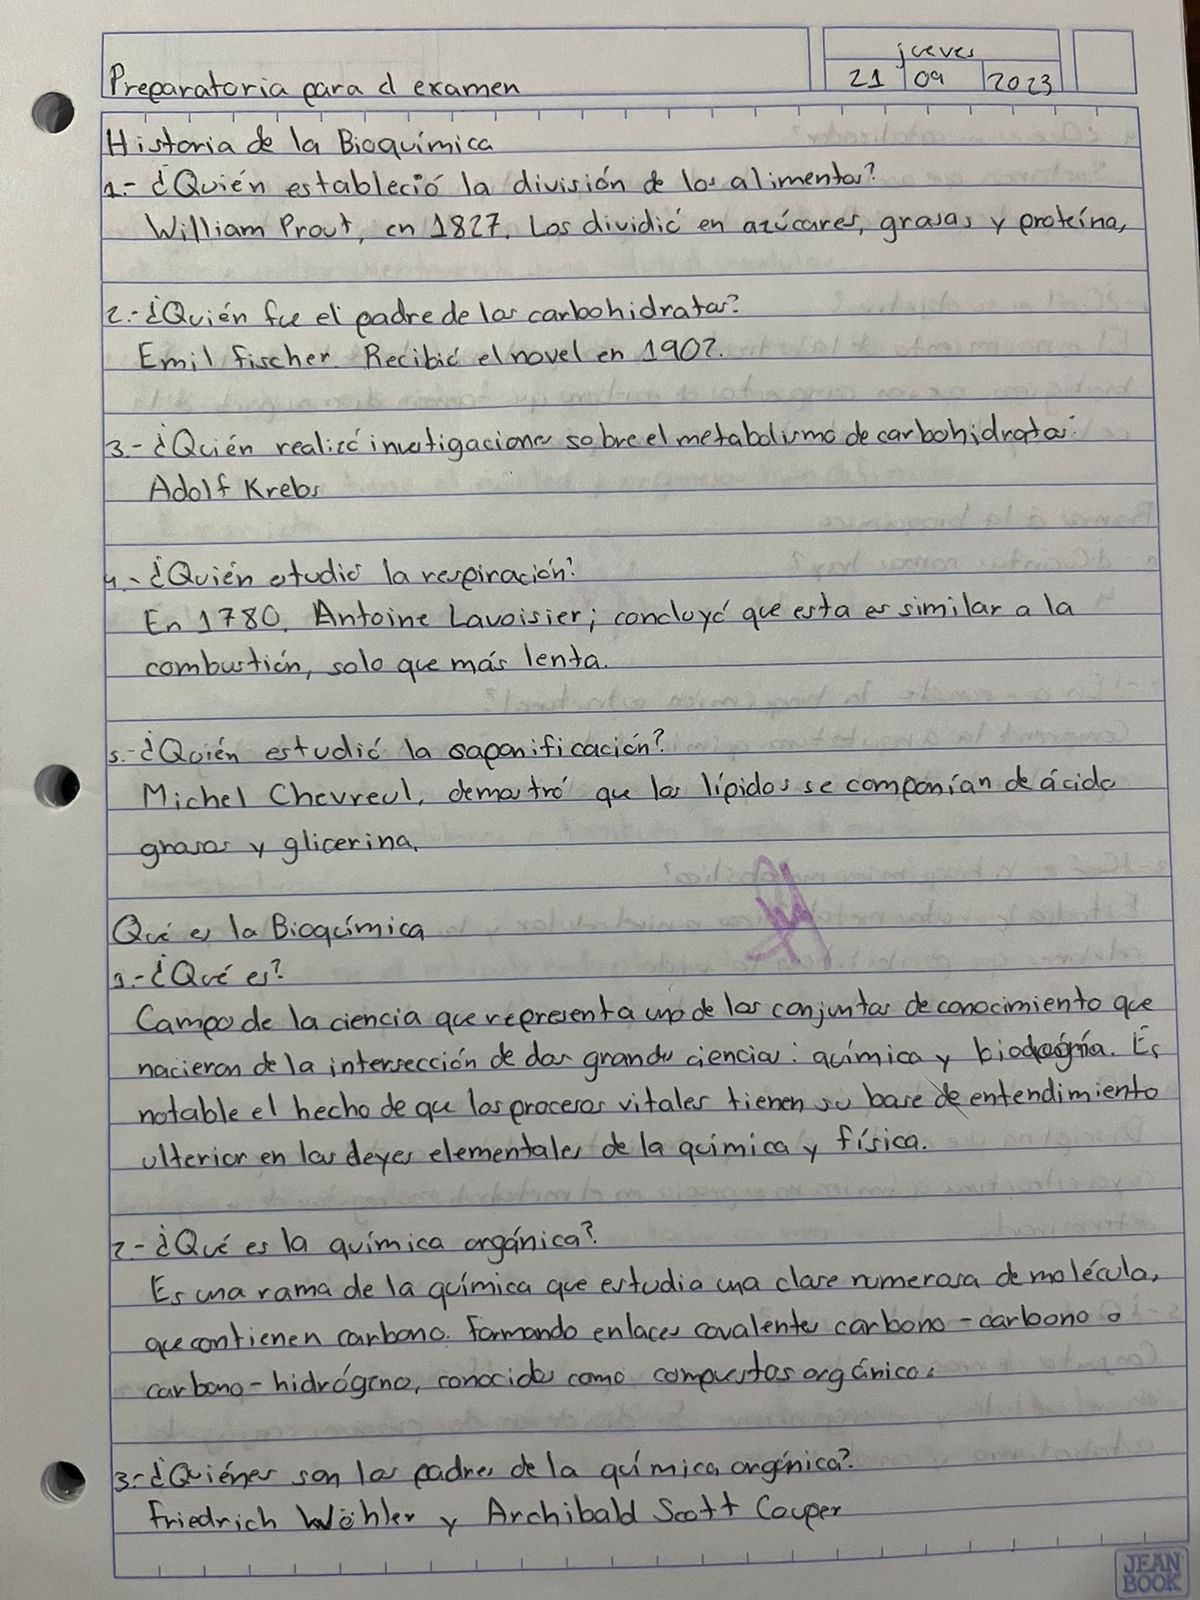 jueves
Preparatoria para el examen
21 09 2023
Historia de la Bioquímica
1.- ¿Quién estableció la división de los alimentos?
William Prout, en 1827. Los dividió en azúcares, grasas y proteínas
2.- ¿Quién fue el padre de los carbohidratos?
Emil Fischer. Recibió el novel en 1902.
3.- ¿Quién realizó investigaciones sobre el metabolismo de carbohidratos?
Adolf Krebs
4.- ¿Quién estudió la respiración?
En 1780. Antoine Lavoisier; concluyó que esta es similar a la
combustión, solo que más lenta.
5.- ¿Quién estudió la saponificación?
Michel Chevreul, demostró que los lípidos se componían de ácidos
grasos y glicerina.
Qué es la Bioquímica
1.- ¿Qué es?
Campo de la ciencia que representa uno de los conjuntos de conocimiento que
nacieron de la intersección de dos grandes ciencias: química y biología. Es
notable el hecho de que los procesos vitales tienen su base de entendimiento
ulterior en las leyes elementales de la química y física.
2.- ¿Qué es la química orgánica?
Es una rama de la química que estudia una clase numerosa de moléculas
que contienen carbono. Formando enlaces covalentes carbono - carbono o
carbono - hidrógeno, conocidos como compuestos orgánicos.
3.- ¿Quiénes son los padres de la química orgánica?
Friedrich Wöhler y Archibald Scott Couper
JEAN
BOOK